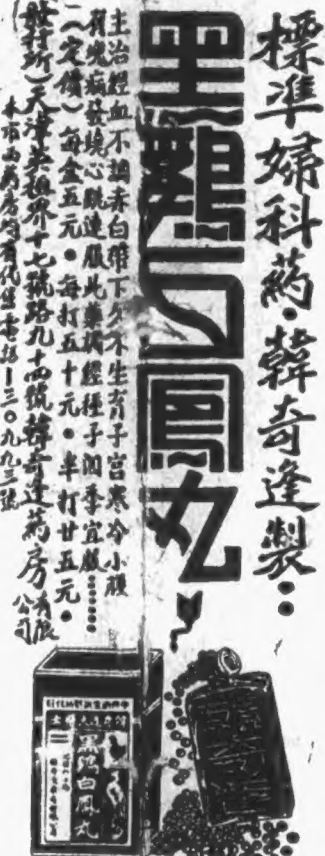 標準婦科藥·韓奇逢製
黑鷄白鳳丸
主治經血不調赤白帶下久不生育子宮寒冷小腹
有塊病發燒心跳連服此藥調經種子四季宜服
（定價）每盒五元●每打五十元●半打廿五元●
發行所）天津英租界十七號路九十四號韓奇逢藥房有限公司
本市西藥房均有代售電話三〇九九三號
黑鷄白鳳丸
韓奇逢